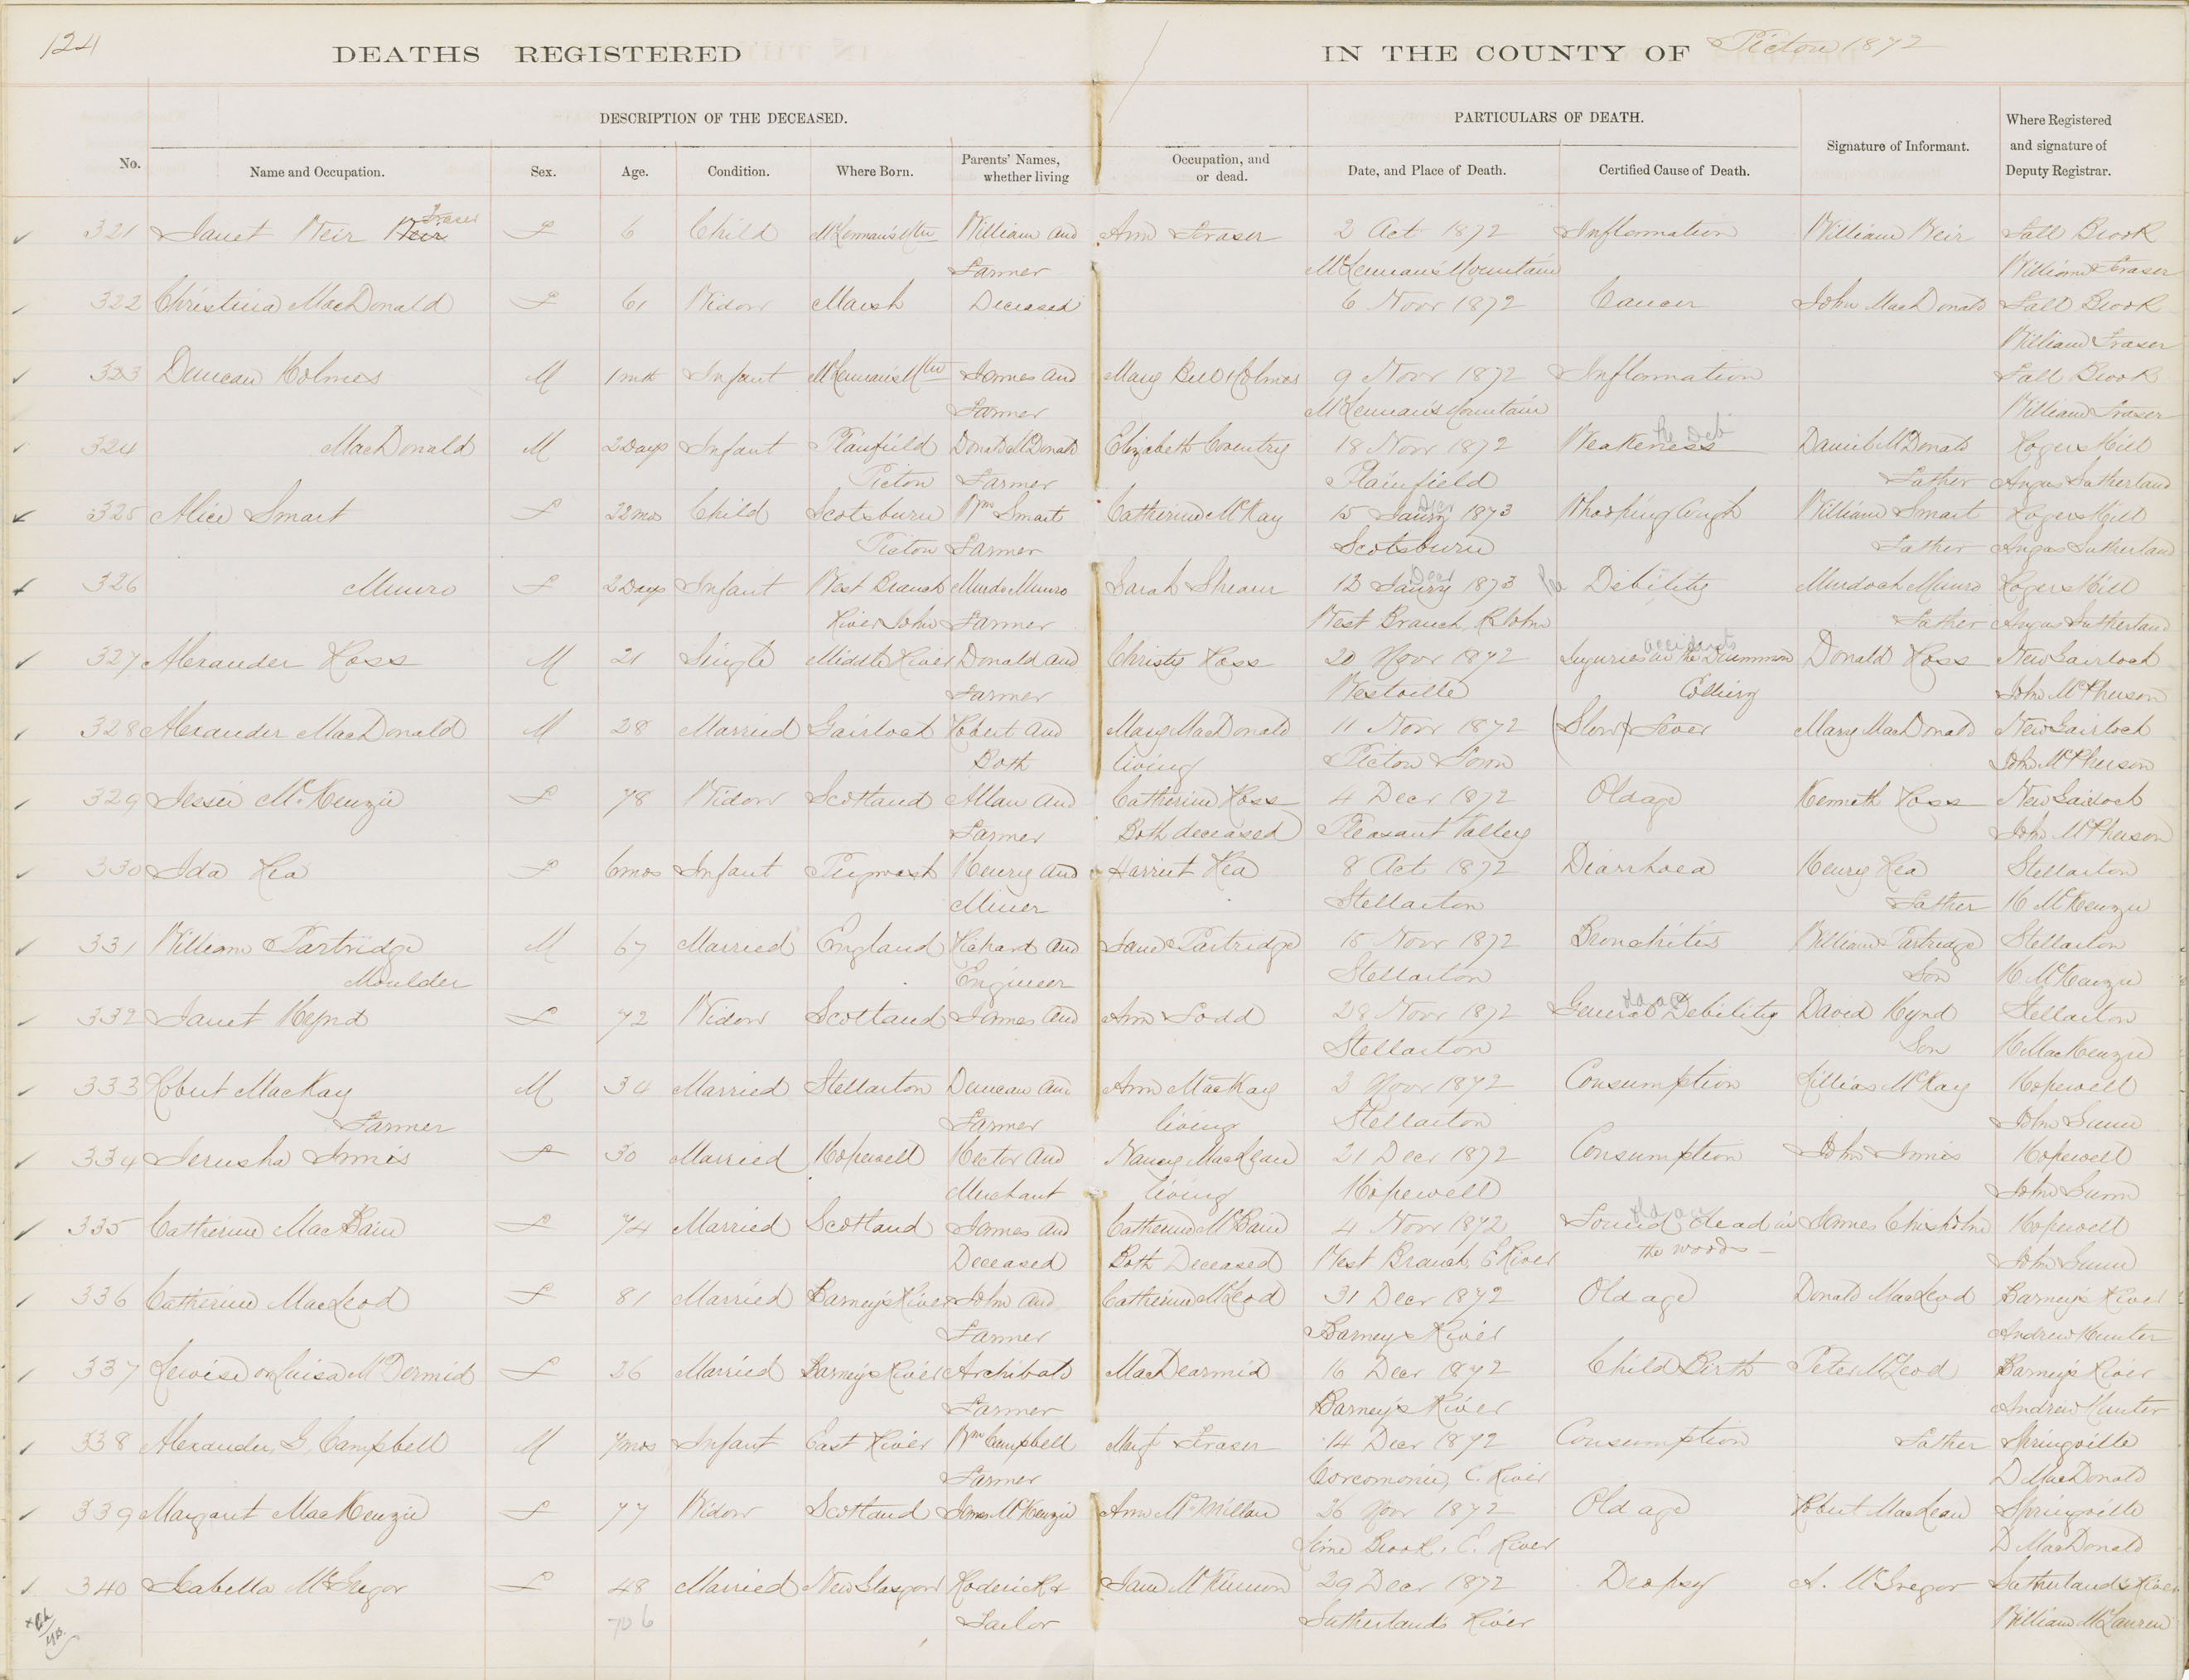 124
DEATHS REGISTERED IN THE COUNTY OF Pictou 1872
DESCRIPTION OF THE DECEASED. PARTICULARS OF DEATH.
No. Name and Occupation. Sex. Age. Condition. Where Born. Parents' Names, whether living Occupation, and or dead. Date, and Place of Death. Certified Cause of Death. Signature of Informant. Where Registered and signature of Deputy Registrar.
321 Janet Weir Weir Fraser F 6 Child McLennan's Mtn William and Ann Fraser 2 Oct 1872 Inflamation William Weir Fall Brook
Farmer McLennan's Mountain William Fraser
322 Christina MacDonald F 61 Widow Marsh Deceased 6 Novr 1872 Cancer John MacDonald Fall Brook
William Fraser
323 Duncan Holmes M 1 mth Infant McLennan's Mtn James and Mary Bell Holmes 9 Novr 1872 Inflamation Fall Brook
Farmer McLennan's Mountain William Fraser
324 MacDonald M 2 Days Infant Plainfield Donald McDonald Elizabeth Coventry 18 Novr 1872 Weakeness Daniel McDonald Rogers Hill
Pictou Farmer Plainfield Father Angus Sutherland
325 Alice Smart F 22 mos Child Scotsburn Wm Smart Catherine McKay 15 Jaury Dec 1873 Whooping Cough William Smart Rogers Hill
Pictou Farmer Scotsburn Father Angus Sutherland
326 Munro F 2 Days Infant West Branch Murdo Munro Sarah Shearer 13 Jaury Decr 1873 Debility Murdoch Munro Rogers Hill
River John Farmer West Branch, R John Father Angus Sutherland
327 Alexander Ross M 21 Single Middle River Donald and Christy Ross 20 Novr 1872 Injuries accidents in the Drummon Donald Ross New Gairloch
Farmer Westville Colliery John McPherson
328 Alexander MacDonald M 28 Married Gairloch Robert and Mary MacDonald 11 Novr 1872 (Slow) Fever Mary MacDonald New Gairloch
Both living Pictou Town John McPherson
329 Jessie McKenzie F 78 Widow Scotland Allan and Catherine Ross 4 Decr 1872 Old age Kenneth Ross New Gairloch
Farmer Both deceased Pleasant Valley John McPherson
330 Ida Rea F 6 mos Infant Pugwash Henry and Harriet Rea 8 Oct 1872 Diarrhoea Henry Rea Stellarton
Miner Stellarton Father H McKenzie
331 William Partridge M 67 Married England Richard and Jane Partridge 15 Novr 1872 Bronchitis William Partridge Stellarton
Moulder Engineer Stellarton Son H McKenzie
332 Janet Hynd F 72 Widow Scotland James and Ann Todd 28 Novr 1872 General Debility David Hynd Stellarton
Stellarton Son H MacKenzie
333 Robert MacKay M 34 Married Stellarton Duncan and Ann MacKay 3 Novr 1872 Consumption Lillias McKay Hopewell
Farmer Farmer living Stellarton John Gunn
334 Jerusha Innis F 30 Married Hopewell Hector and Nancy MacLean 21 Decr 1872 Consumption John Innis Hopewell
Merchant living Hopewell John Gunn
335 Catherine MacBain F 74 Married Scotland James and Catherine McBain 4 Novr 1872 Found dead in James Chisholm Hopewell
Deceased Both Deceased West Branch, E River the woods John Gunn
336 Catherine MacLeod F 81 Married Barney's River John and Catherine McLeod 31 Decr 1872 Old age Donald MacLeod Barney's River
Farmer Barney's River Andrew Hunter
337 Lewise or Luisa McDermid F 26 Married Barney's River Archibald MacDearmid 16 Decr 1872 Child Birth Peter McLeod Barney's River
Farmer Barney's River Andrew Hunter
338 Alexander G. Campbell M 7 mos Infant East River Wm Campbell Fraser 14 Decr 1872 Consumption Father Springville
Farmer E. River D MacDonald
339 Margaret MacKenzie F 77 Widow Scotland James McKenzie Ann McMillan 26 Novr 1872 Old age Robert MacLean Springville
Lime Brook, E. River D MacDonald
340 Isabella McGregor F 48 Married New Glasgow Roderick & Jane McKinnon 29 Decr 1872 Dropsy A. McGregor Sutherland's River
706 Tailor Sutherlands River William McLauren